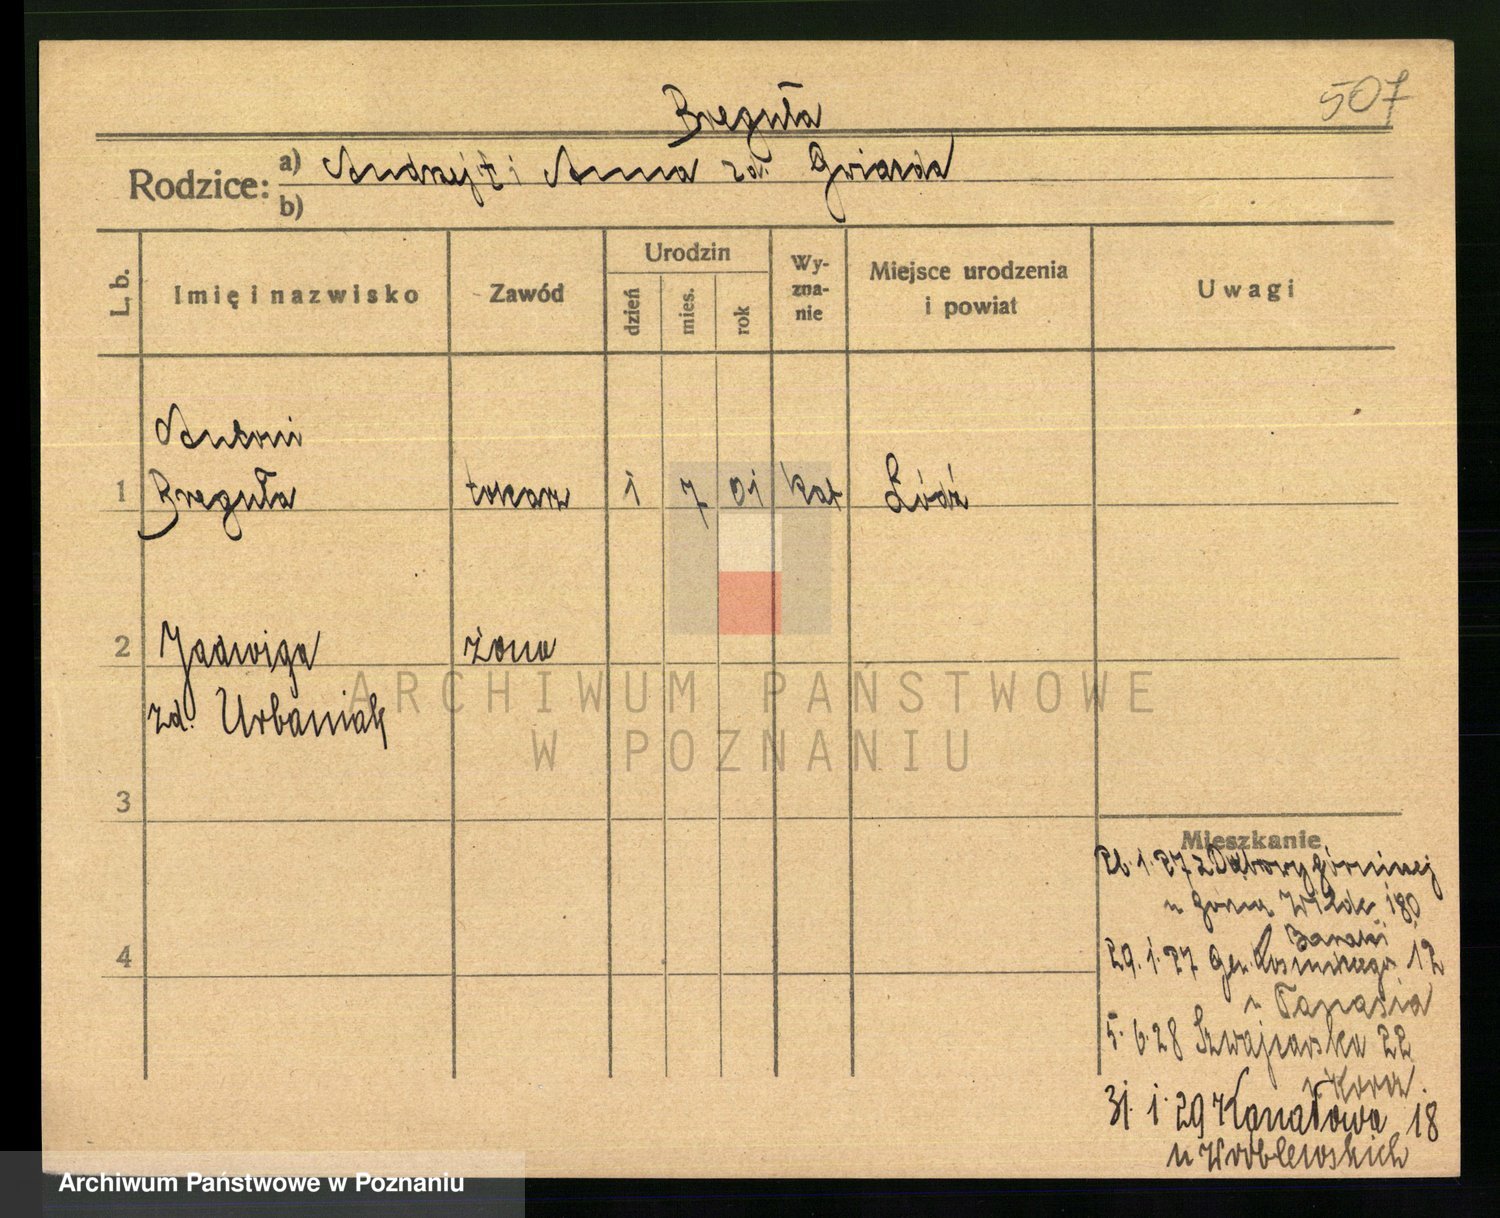 507
Breguła
Rodzice: a) Andrzej † i Anna zd. Gwiazda
b)
L. b.
Imię i nazwisko
Zawód
Urodzin
dzień
mies.
rok
Wy-
zna-
nie
Miejsce urodzenia
i powiat
Uwagi
Antoni
1 Breguła tokarz 1 7 01 kat Łódź
2 Jadwiga żona
zd. Urbaniak
3
4
Mieszkanie
26.1.27 z Dąbrowy górniczej
u Górna Wilda 180
29.1.27 Gen. Kosińskiego 12
u
5.6.28 Szwajcarska 22
u
31.1.29 Kanałowa 18
u Wróblewskich
ARCHIWUM PAŃSTWOWE
W POZNANIU
Archiwum Państwowe w Poznaniu